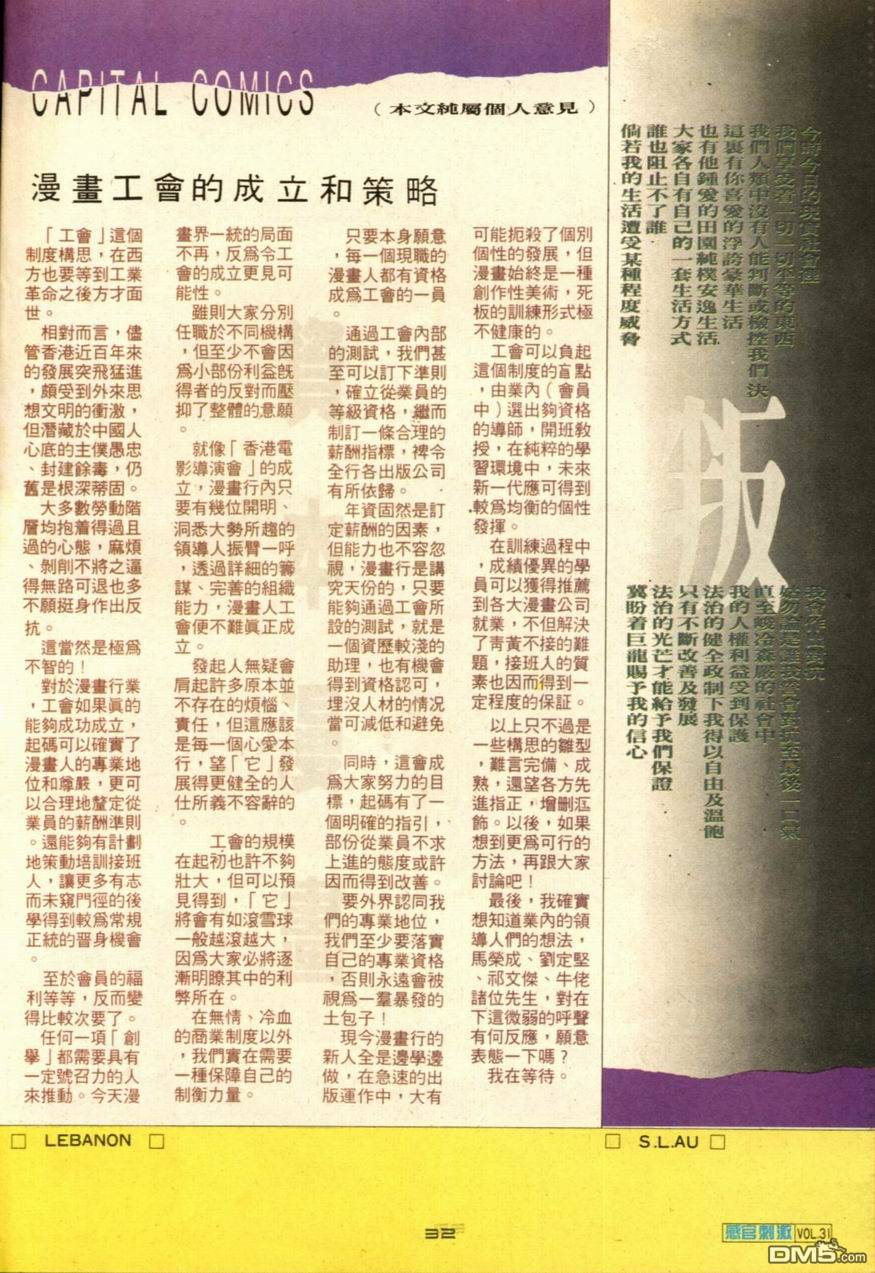 CAPITAL COMICS
（本文純屬個人意見）
漫畫工會的成立和策略
「工會」這個
制度構思，在西
方也要等到工業
革命之後方才面
世。
相對而言，儘
管香港近百年來
的發展突飛猛進
，頗受到外來思
想文明的衝激，
但潛藏於中國人
心底的主僕愚忠
、封建餘毒，仍
舊是根深蒂固。
大多數勞動階
層均抱着得過且
過的心態，麻煩
、剝削不將之逼
得無路可退也多
不願挺身作出反
抗。
這當然是極爲
不智的！
對於漫畫行業
，工會如果眞的
能夠成功成立，
起碼可以確實了
漫畫人的專業地
位和尊嚴，更可
以合理地釐定從
業員的薪酬準則
。還能夠有計劃
地策動培訓接班
人，讓更多有志
而未窺門徑的後
學得到較爲常規
正統的晉身機會
。
至於會員的福
利等等，反而變
得比較次要了。
任何一項「創
擧」都需要具有
一定號召力的人
來推動。今天漫
畫界一統的局面
不再，反爲令工
會的成立更見可
能性。
雖則大家分別
任職於不同機構
，但至少不會因
爲小部份利益旣
得者的反對而壓
抑了整體的意願
。
就像「香港電
影導演會」的成
立，漫畫行內只
要有幾位開明、
洞悉大勢所趨的
領導人振臂一呼
，透過詳細的籌
謀、完善的組織
能力，漫畫人工
會便不難眞正成
立。
發起人無疑會
肩起許多原本並
不存在的煩惱、
責任，但這應該
是每一個心愛本
行，望「它」發
展得更健全的人
仕所義不容辭的
。
工會的規模
在起初也許不夠
壯大，但可以預
見得到，「它」
將會有如滾雪球
一般越滾越大，
因爲大家必將逐
漸明瞭其中的利
弊所在。
在無情、冷血
的商業制度以外
，我們實在需要
一種保障自己的
制衡力量。
只要本身願意
，每一個現職的
漫畫人都有資格
成爲工會的一員
。
通過工會內部
的測試，我們甚
至可以訂下準則
，確立從業員的
等級資格，繼而
制訂一條合理的
薪酬指標，裨令
全行各出版公司
有所依歸。
年資固然是訂
定薪酬的因素，
但能力也不容忽
視，漫畫行是講
究天份的，只要
能夠通過工會所
設的測試，就是
一個資歷較淺的
助理，也有機會
得到資格認可，
埋沒人材的情况
當可減低和避免
。
同時，這會成
爲大家努力的目
標，起碼有了一
個明確的指引，
部份從業員不求
上進的態度或許
因而得到改善。
要外界認同我
們的專業地位，
我們至少要落實
自己的專業資格
，否則永遠會被
視爲一羣暴發的
土包子！
現今漫畫行的
新人全是邊學邊
做，在急速的出
版運作中，大有
可能扼殺了個別
個性的發展，但
漫畫始終是一種
創作性美術，死
板的訓練形式極
不健康的。
工會可以負起
這個制度的盲點
，由業內（會員
中）選出夠資格
的導師，開班敎
授，在純粹的學
習環境中，未來
新一代應可得到
較爲均衡的個性
發揮。
在訓練過程中
，成績優異的學
員可以獲得推薦
到各大漫畫公司
就業，不但解決
了靑黃不接的難
題，接班人的質
素也因而得到一
定程度的保証。
以上只不過是
一些構思的雛型
，難言完備、成
熟，還望各方先
進指正，增刪滙
飾。以後，如果
想到更爲可行的
方法，再跟大家
討論吧！
最後，我確實
想知道業內的領
導人們的想法，
馬榮成、劉定堅
、祁文傑、牛佬
諸位先生，對在
下這微弱的呼聲
有何反應，願意
表態一下嗎？
我在等待。
資本漫畫
叛
今時今日的現實社會裡
我們享受着一切一切平等的東西
我們人類中沒有人能判斷或檢控我們 決
這裏有你喜愛的浮誇豪華生活
也有他鍾愛的田園純樸安逸生活
大家各自有自己的一套生活方式
誰也阻止不了誰
倘若我的生活遭受某種程度威脅
直至峻冷森嚴的社會中
我的人權利益受到保護
法治的健全政制下我得以自由及溫飽
只有不斷改善及發展
法治的光芒才能給予我們保證
冀盼着巨龍賜予我的信心
LEBANON
S.L.AU
32
感官刺激 VOL.31
DM5.com